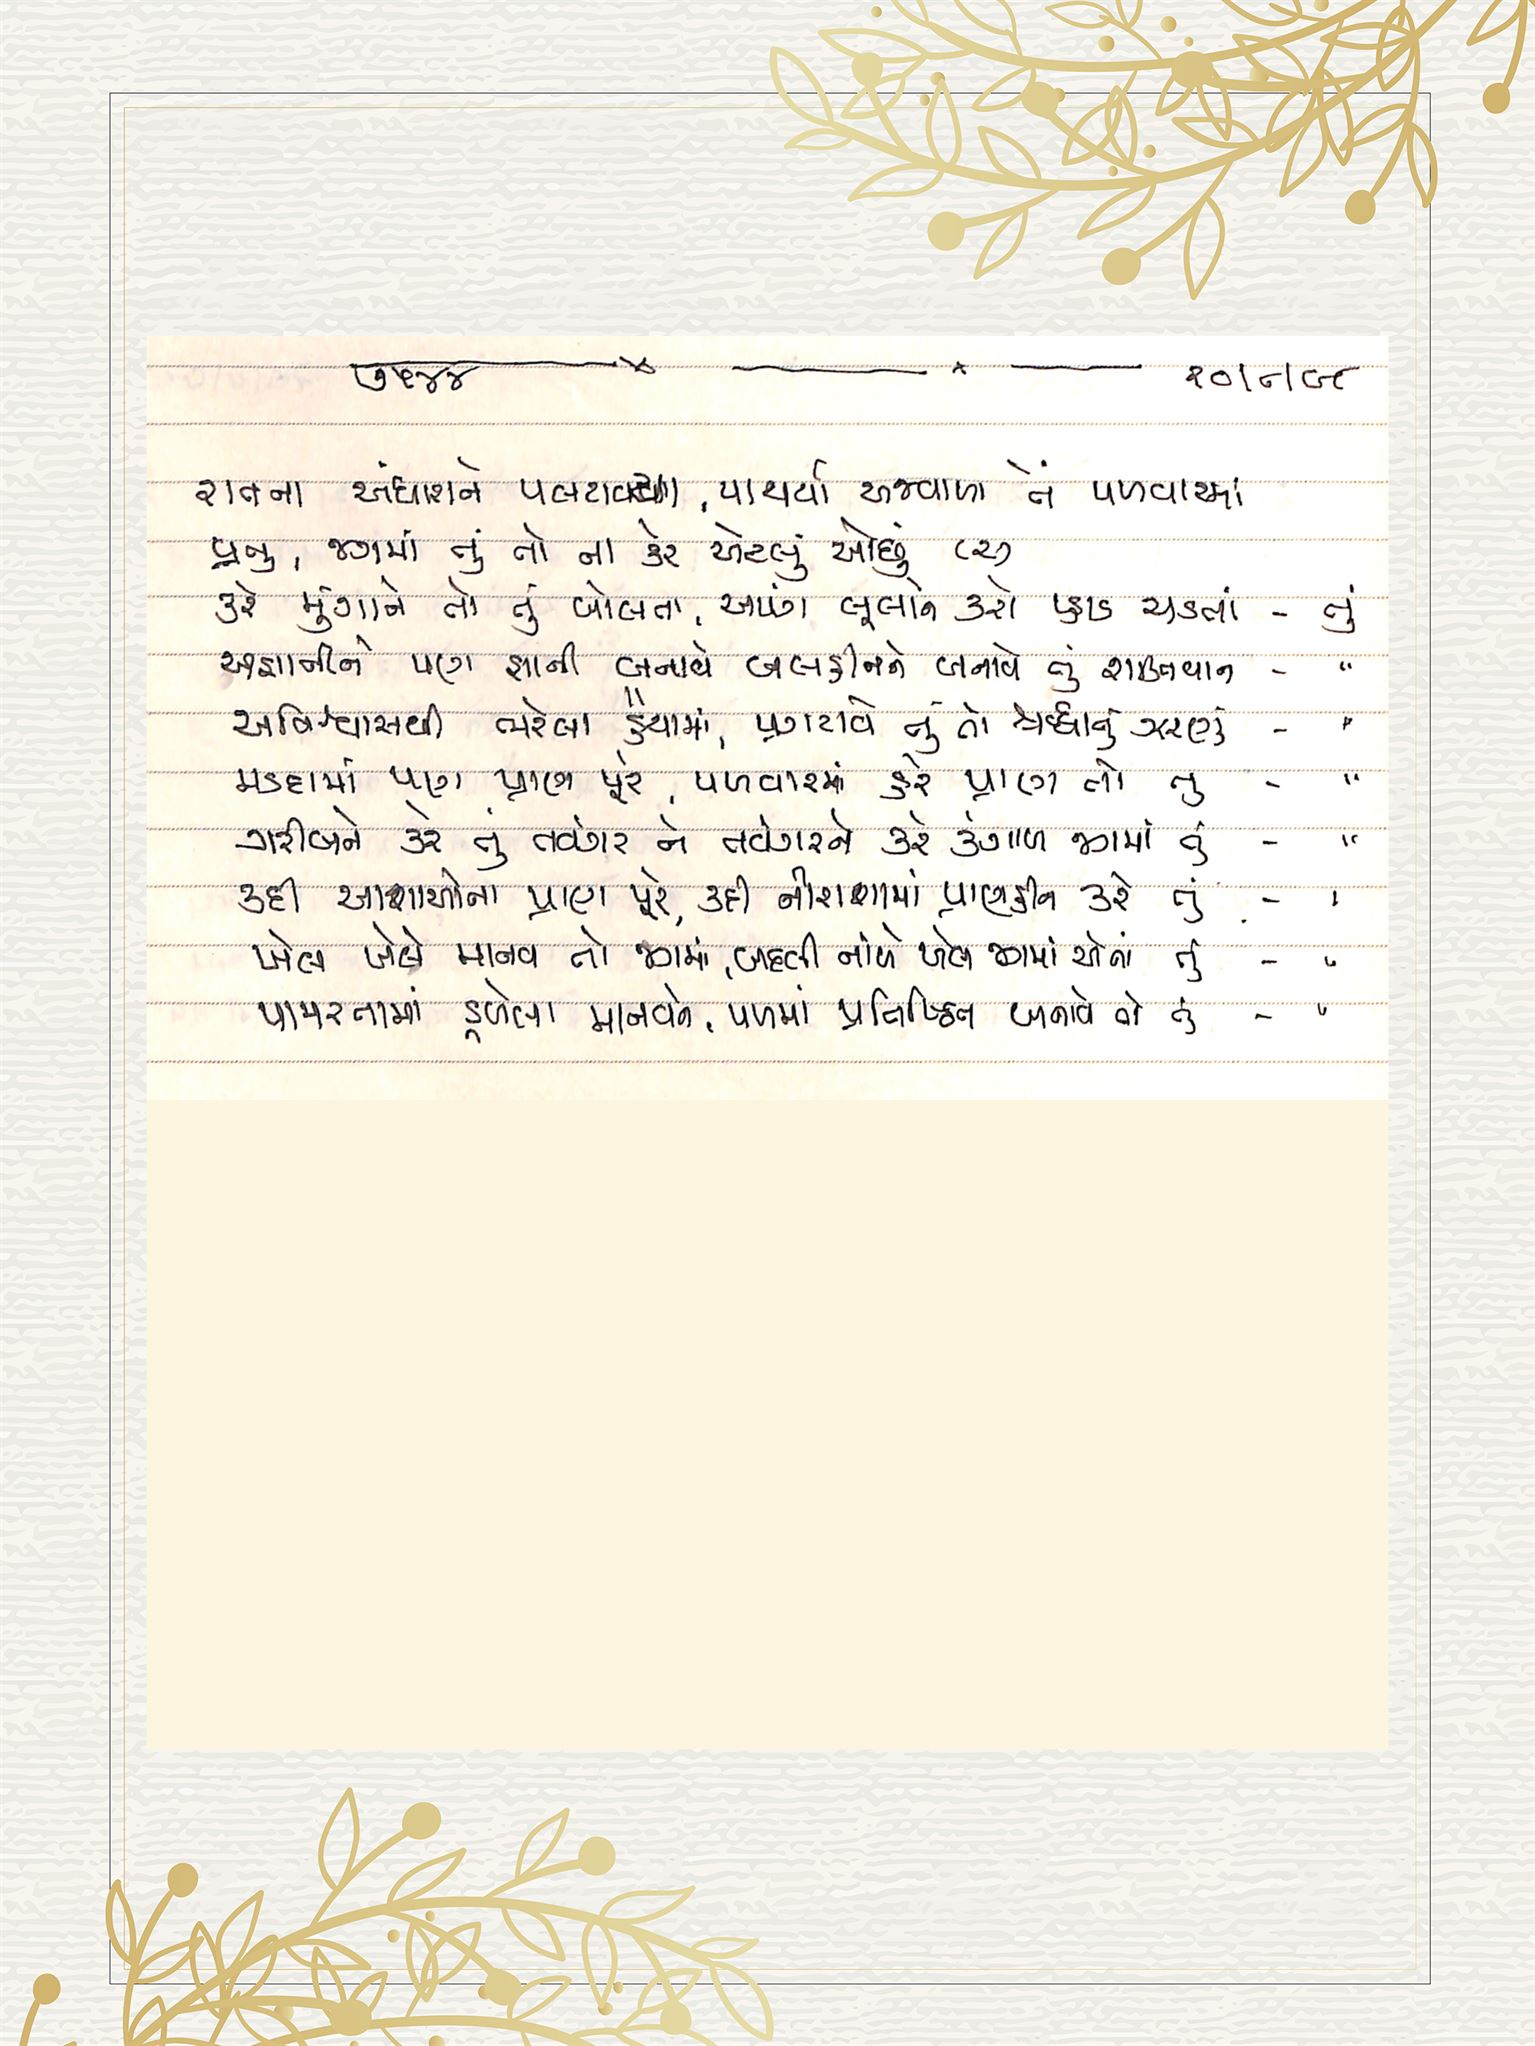 ૭૬૪૪ ૧૦/૮/૯૮
રાતના અંધારાને પલટાવવા, પાથર્યા અજવાળા તેં પળવારમાં
પ્રભુ, જગમાં તું તો ના કરે એટલું ઓછું (૨)
કરે મુંગાને તો તું બોલતા, અપંગ લૂલાને કરો પહાડ ચડતાં - તું
અજ્ઞાનીને પણ જ્ઞાની બનાવે બલહીનને બનાવે તું શક્તિવાન - "
અવિશ્વાસથી ભરેલા હૈયામાં, પ્રગટાવે તું તો શ્રદ્ધાનું ઝરણું - "
મડદામાં પણ પ્રાણ પૂરે, પળવારમાં હરે પ્રાણ તો તું - "
ગરીબને કરે તું તવંગર ને તવંગરને કરે કંગાળ જગમાં તું - "
કદી આશાઓના પ્રાણ પૂરે, કદી નીરાશામાં પ્રાણહીન કરે તું - "
ખેલ ખેલે માનવ તો જગમાં, બદલી નાંખે ખેલ જગમાં એનાં તું - "
પામરતામાં ડૂબેલા માનવને, પળમાં પ્રતિષ્ઠિત બનાવે તો તું - "